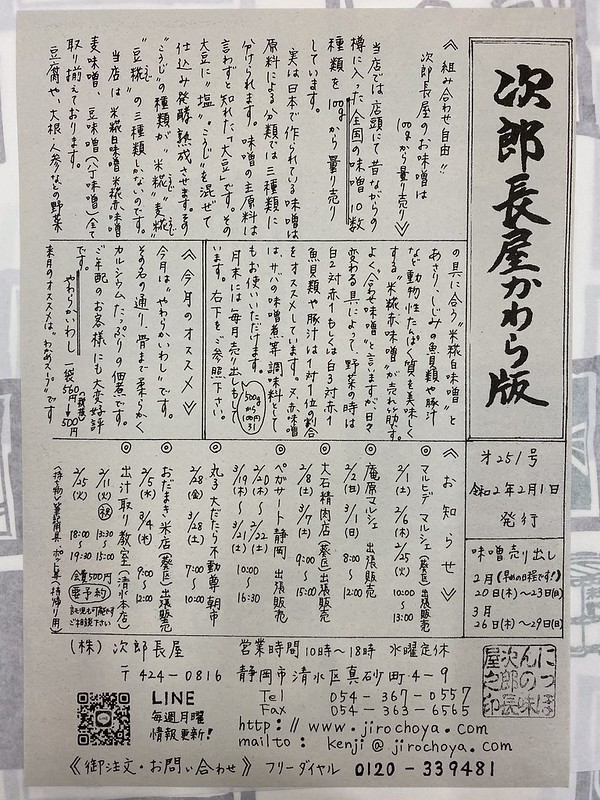 次郎長屋かわら版
《組み合わせ自由!!
次郎長屋のお味噌は
100gから量り売り》
当店では店頭にて昔ながらの
樽に入った全国の味噌10数
種類を100gから量り売り
しています。
実は日本で作られている味噌は
原料による分類では三種類に
分けられます。味噌の主原料は
言わずと知れた"大豆"です。その
大豆に"塩""こうじ"を混ぜて
仕込み発酵熟成させます。その
"こうじ"の種類が"米糀""麦糀"
"豆糀"の三種類しかないのです。
当店は米糀白味噌米糀赤味噌
麦味噌、豆味噌(八丁味噌)全て
取り揃えております。
豆腐や、大根、人参などの野菜
の具に合う"米糀白味噌"と
あさり、しじみの魚貝類や豚汁
など動物性たんぱく質を美味しく
する"米糀赤味噌"が売れ筋です。
よく"合わせ味噌"と言いますが日々
変わる具によって、野菜の時は
白2対赤1もしくは白3対赤1
魚貝類や豚汁は1対1位の割合
をオススメしています。又、赤味噌
は、サバの味噌煮等調味料として
もお使いいただけます。
月末には毎月売り出しも
います。右下をご参照下さい。
500g
から
100円引
《今月のオススメ》
今月は"やわらかいわし"です。
その名の通り、骨まで柔らかく
カルシウムたっぷりの佃煮です。
ご年配のお客様にも大変好評
です。
やわらかいわし 一袋560円→500円
来月のオススメは"わかめスープ"です
オ251号
令和2年2月1日
発行
味噌売り出し
2月(早めの日程です!!)
20日(木)〜23日(日)
3月
26日(木)〜29日(日)
《お知らせ》
◎マルヒデマルシェ(葵区)出張販売
2/1(土) 2/6(木) 2/25(火) 10:00〜13:00
◎庵原マルシェ 出張販売
2/2(日) 3/1(日) 8:00〜12:00
◎大石精肉店(葵区)出張販売
2/8(土) 3/7(土) 9:00〜15:00
◎ペガサート静岡 出張販売
2/20(木)〜2/22(土)
3/19(木)〜3/21(土) 10:00〜16:30
◎丸子まだたら不動尊朝市
2/28(金) 3/28(土) 7:00〜
◎おだまき米店(葵区)出張販売
2/5(水) 3/4(水) 9:00〜12:00
◎出汁取り教室(清水本店)
2/11(火)祝 13:30〜15:00
2/25(火) 18:00〜19:30
会費500円
要予約
託児も可能です
ご相談下さい
(持ち物)筆記用具 ポット類(持帰り用)
(株)次郎長屋
営業時間10時〜18時 水曜定休
〒424-0816 静岡市清水区真砂町4-9
Tel 054-367-0557
Fax 054-363-6565
LINE
毎週月曜
情報更新!
http://www.jirochoya.com
mailto: kenji@jirochoya.com
《御注文・お問い合わせ》フリーダイヤル 0120-339481
にっぽ
んの味
次郎長
屋之印